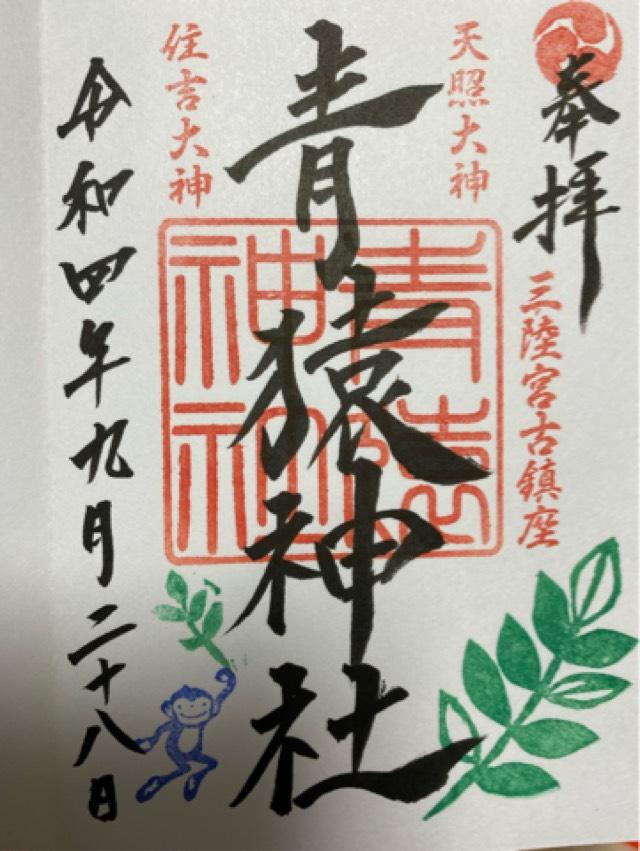 奉拝
三陸宮古鎮座
天照大神
青猿神社
住吉大神
青猿
神社
令和四年九月二十八日